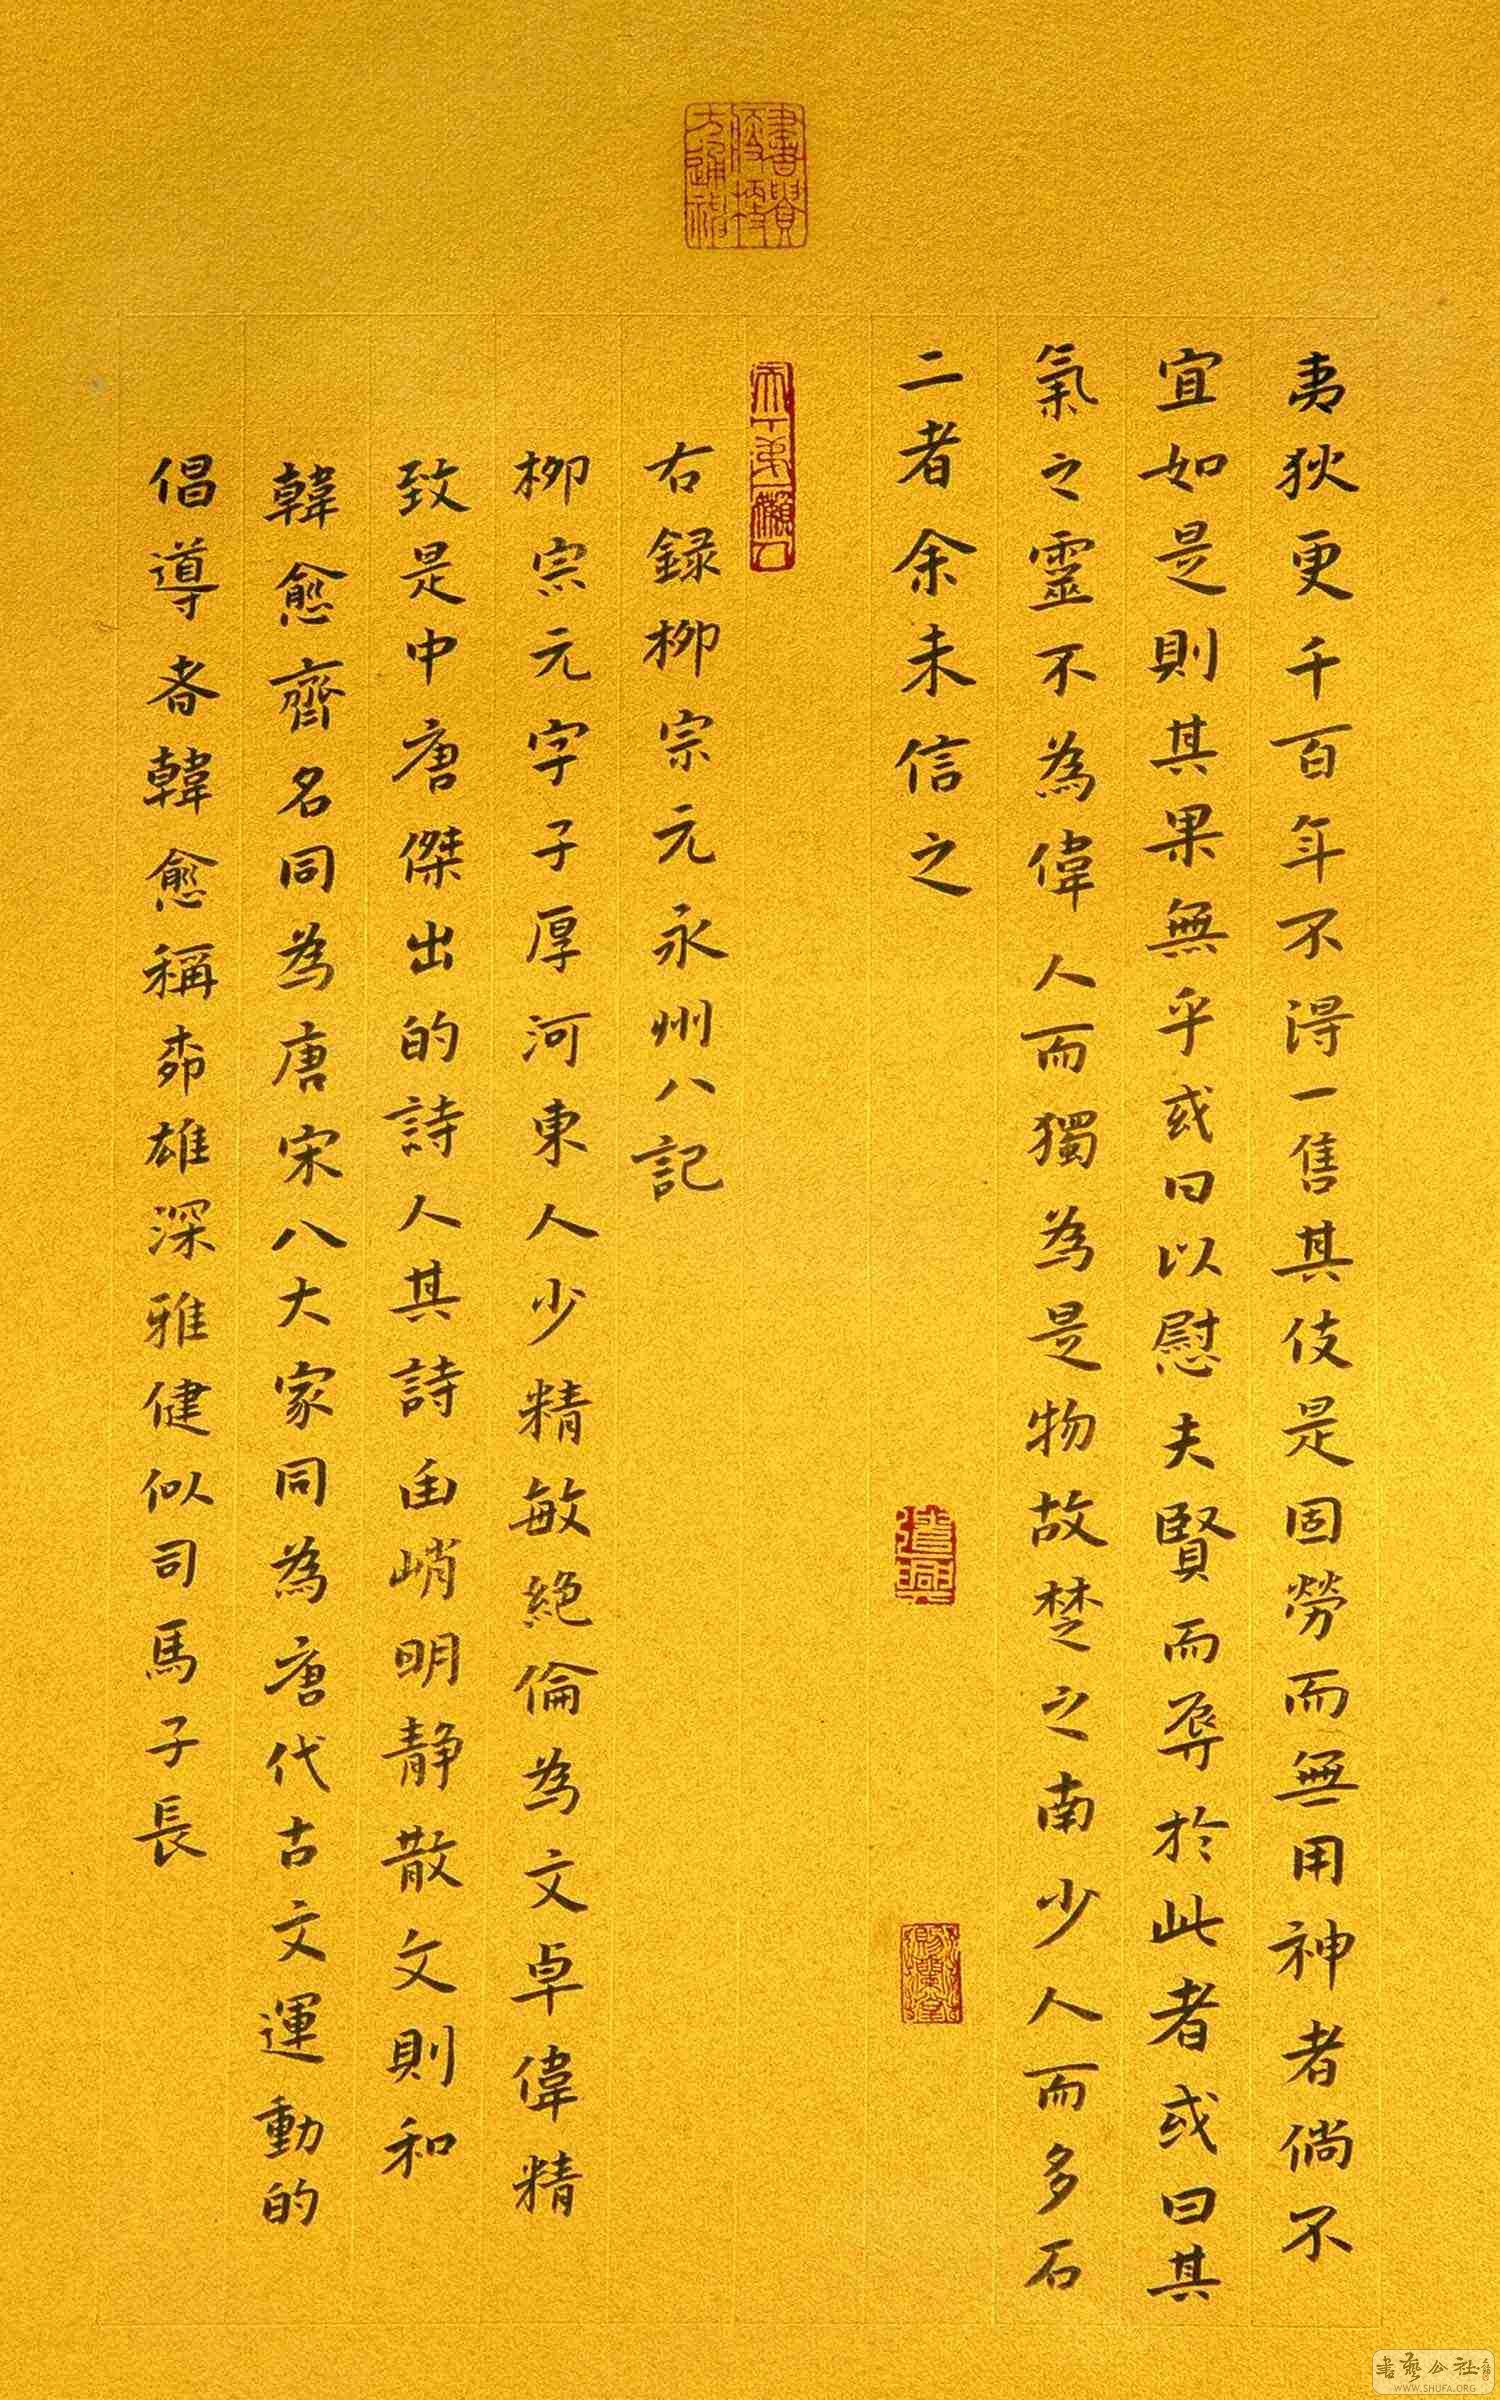 夷狄更千百年不淂一售其伎是固勞而無用神者倘不
宜如是則其果無乎或曰以慰夫賢而辱於此者或曰其
氣之靈不為偉人而獨為是物故楚之南少人而多石
二者余未信之
右録柳宗元永州八記
柳宗元字子厚河東人少精敏絕倫為文卓偉精
致是中唐傑出的詩人其詩幽峭明靜散文則和
韓愈齊名同為唐宋八大家同為唐代古文運動的
倡導者韓愈稱赤雄深雅健似司馬子長
書藝公社
WWW.SHUFA.ORG